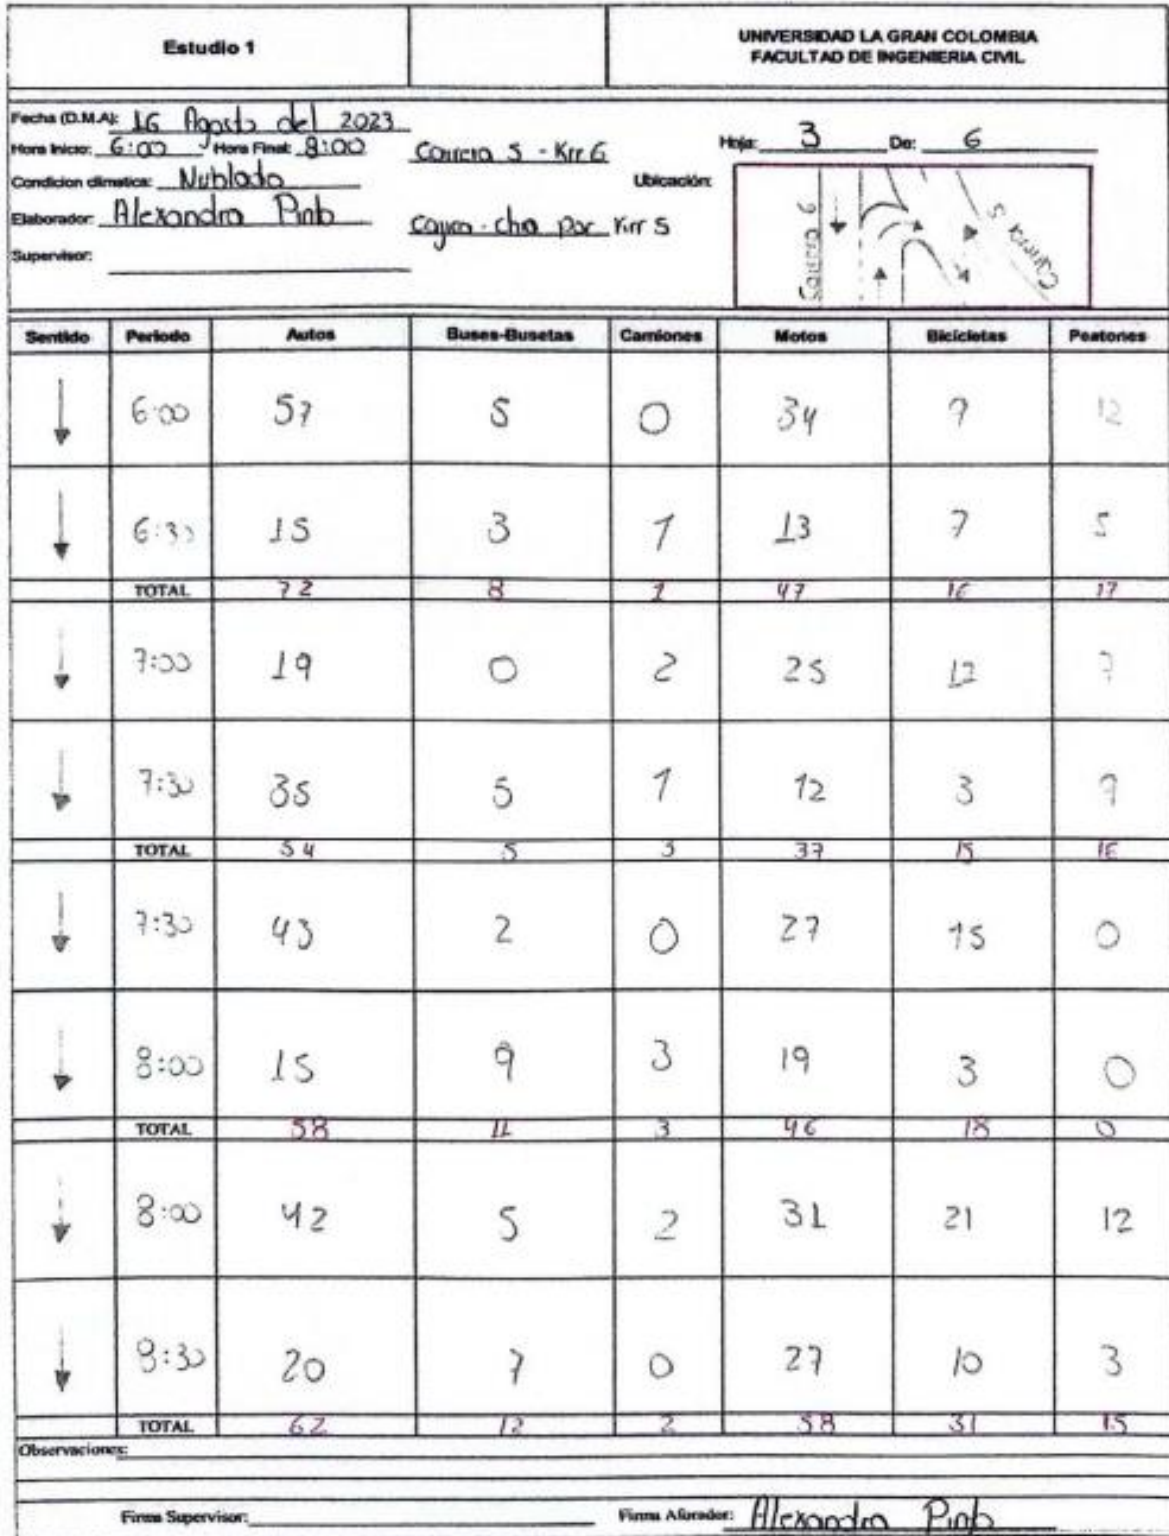 Estudio 1
UNIVERSIDAD LA GRAN COLOMBIA
FACULTAD DE INGENIERIA CIVIL
Fecha (D.M.A): 16 Agosto del 2023
Hora Inicio: 6:00 Hora Final: 8:00 Carrera 5 - Krr 6 Hoja: 3 De: 6
Condicion climatica: Nublado Ubicación:
Elaborador: Alexandra Pinto por Krr 5
Supervisor:
Carrera 6 Carrera 5
Sentido Periodo Autos Buses-Busetas Camiones Motos Bicicletas Peatones
6:00 57 5 0 34 9 12
6:30 15 3 1 13 7 5
TOTAL 72 8 1 47 16 17
7:00 19 0 2 25 12 7
7:30 35 5 1 12 3 9
TOTAL 54 5 3 37 15 16
7:30 43 2 0 27 15 0
8:00 15 9 3 19 3 0
TOTAL 58 11 3 46 18 0
8:00 42 5 2 31 21 12
8:30 20 7 0 27 10 3
TOTAL 62 12 2 58 31 15
Observaciones:
Firma Supervisor: Firma Aforador: Alexandra Pinto